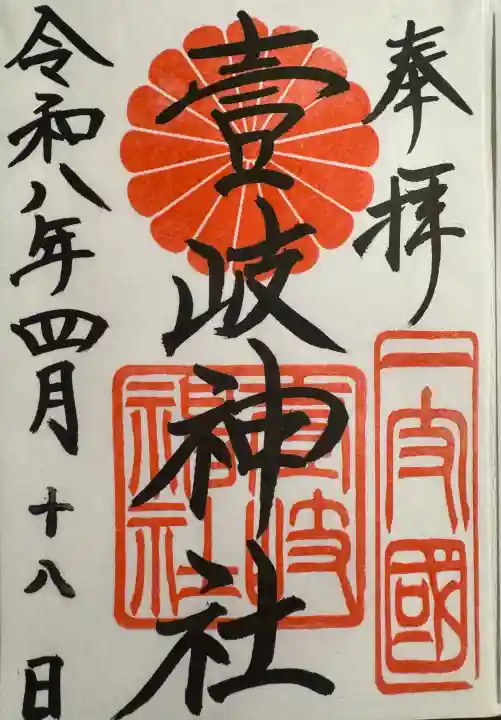 奉拝
一支國
壹岐神社
壹岐神社
令和八年四月十八日